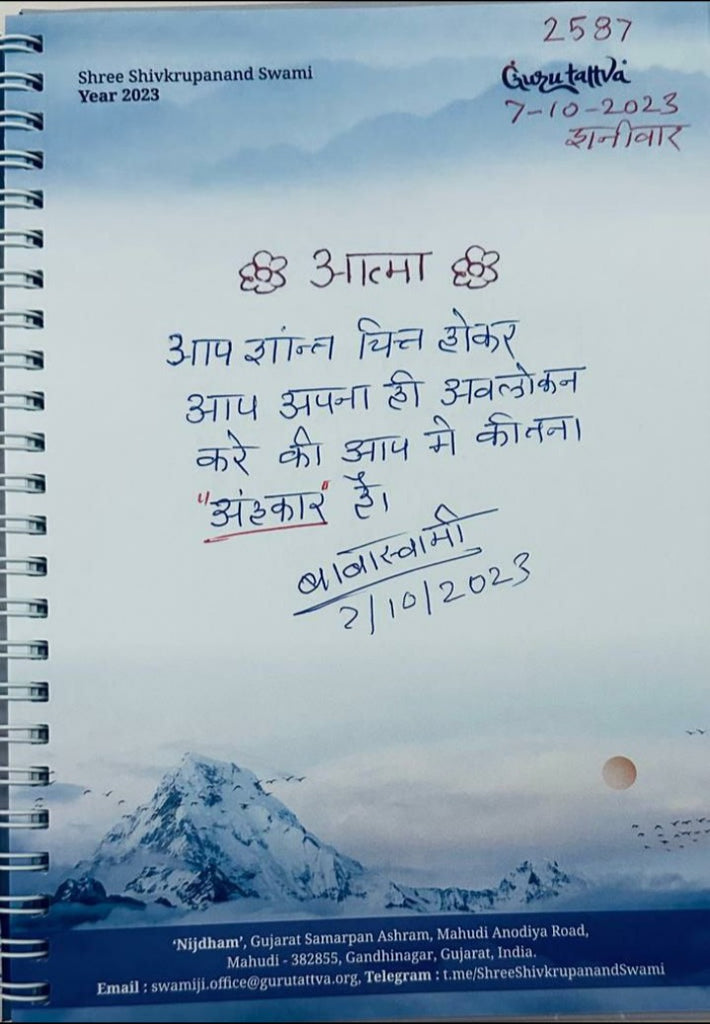 2587
Shree Shivkrupanand Swami
Gurutattva
Year 2023
7-10-2023
शनीवार
आत्मा
आप शांन्त चित्त होकर
आप अपना ही अवलोकन
करे की आप मे कीतना
"अंहकार" है।
बाबास्वामी
7/10/2023
'Nijdham', Gujarat Samarpan Ashram, Mahudi Anodiya Road,
Mahudi - 382855, Gandhinagar, Gujarat, India.
Email : swamiji.office@gurutattva.org, Telegram : t.me/ShreeShivkrupanandSwami